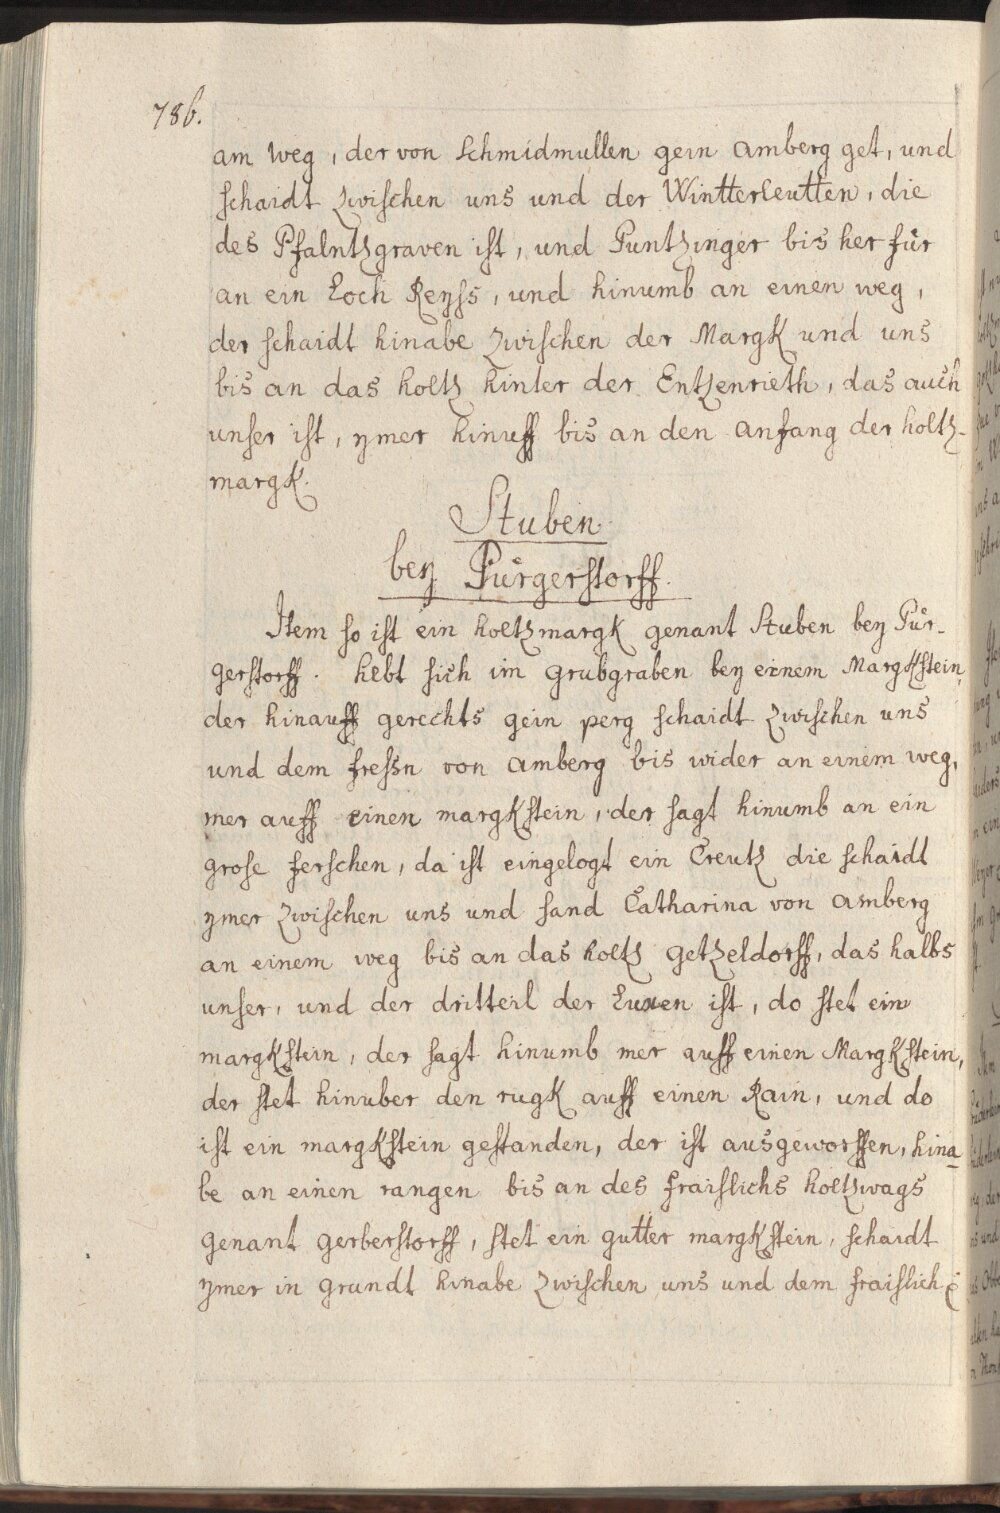 786.
am weg, der von Schmidmullen gein Amberg get, und
schaidt zwischen uns und der Wintterleutten, die
des Pfalntzgraven ist, und Puntzinger bis her für
an ein Loch Reyss, und hinumb an einen weg,
der schaidt hinabe zwischen der Margk und uns
bis an das holtz hinter der Entzenrieth, das auch
unser ist, ymer hinuff bis an den anfang der holtz-
margk.
Stuben
bey Pürgerstorff.
Item so ist ein holtzmargk genant Stuben bey Pür-
gerstorff. hebt sich im grubgraben bey einem Margkstein,
der hinauff gerechts gein perg schaidt zwischen uns
und dem fressn von Amberg bis wider an einem weg,
mer auff einen margkstein, der sagt hinumb an ein
grose ferschen, da ist eingelogt ein Creutz die schaidt
ymer zwischen uns und sand Catharina von Amberg
an einem weg bis an das holtz getzeldorff, das halbs
unser, und der dritteil der ist, do stet ein
margkstein, der sagt hinumb mer auff einen Margkstein,
der stet hinuber den rugk auff einen Rain, und do
ist ein margkstein gestanden, der ist ausgeworffen, hina-
be an einen rangen bis an des fraislichs holtzwags
genant gerberstorff, stet ein gutter margkstein, schaidt
ymer in grundt hinabe zwischen uns und dem fraislich